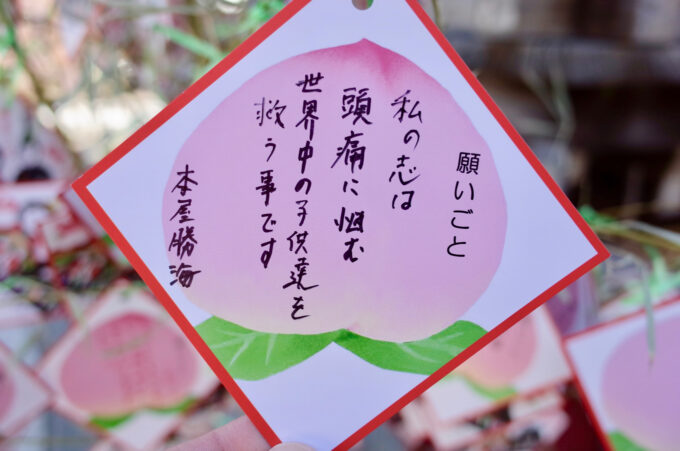 願いごと
私の志は
頭痛に悩む
世界中の子供達を
救う事です
本屋勝海